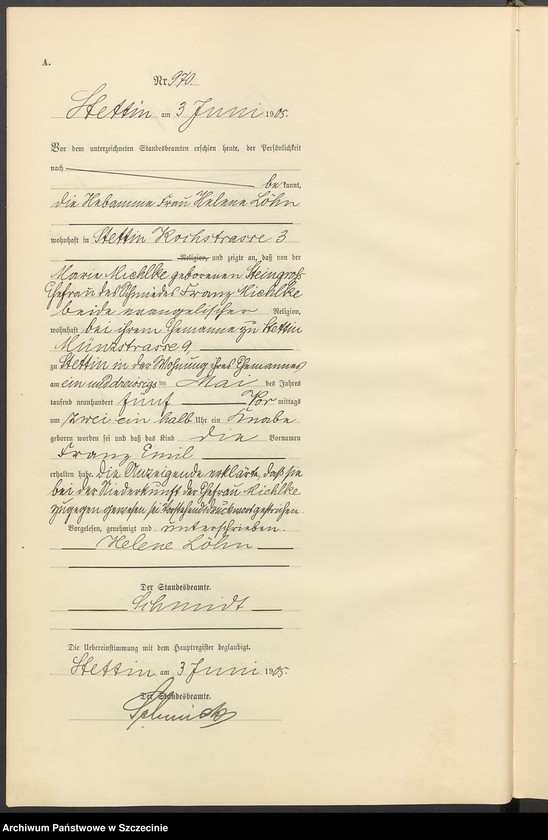 A.
Nr. 970.
Stettin am 3 Juni 1905.
Vor dem unterzeichneten Standesbeamten erschien heute, der Persönlichkeit
nach
bekannt,
die Hebamme Frau Helene Löhn
wohnhaft in Stettin Kochstrasse 3
Religion, und zeigte an, daß von der
Marie Michlke geborenen Steingroß
Ehefrau des Schmiedes Franz Michlke
beide evangelischer Religion,
wohnhaft bei ihrem Ehemanne zu Stettin
Münzstrasse 9,
zu Stettin in der Wohnung ihres Ehemannes
am ein und dreissigs im Mai des Jahres
tausend neunhundert fünf Vor mittags
um zwei ein halb Uhr ein Knabe
geboren worden sei und daß das Kind die Vornamen
Franz Emil
erhalten habe. Die Anzeigende erklärte, daß sie
bei der Niederkunft der Ehefrau Michlke
zugegen gewesen sei. Vorstehend Druckwort gestrichen.
Vorgelesen, genehmigt und unterschrieben.
Helene Löhn
Der Standesbeamte.
Schmidt
Die Uebereinstimmung mit dem Hauptregister beglaubigt.
Stettin am 3 Juni 1905.
Der Standesbeamte.
Archiwum Państwowe w Szczecinie